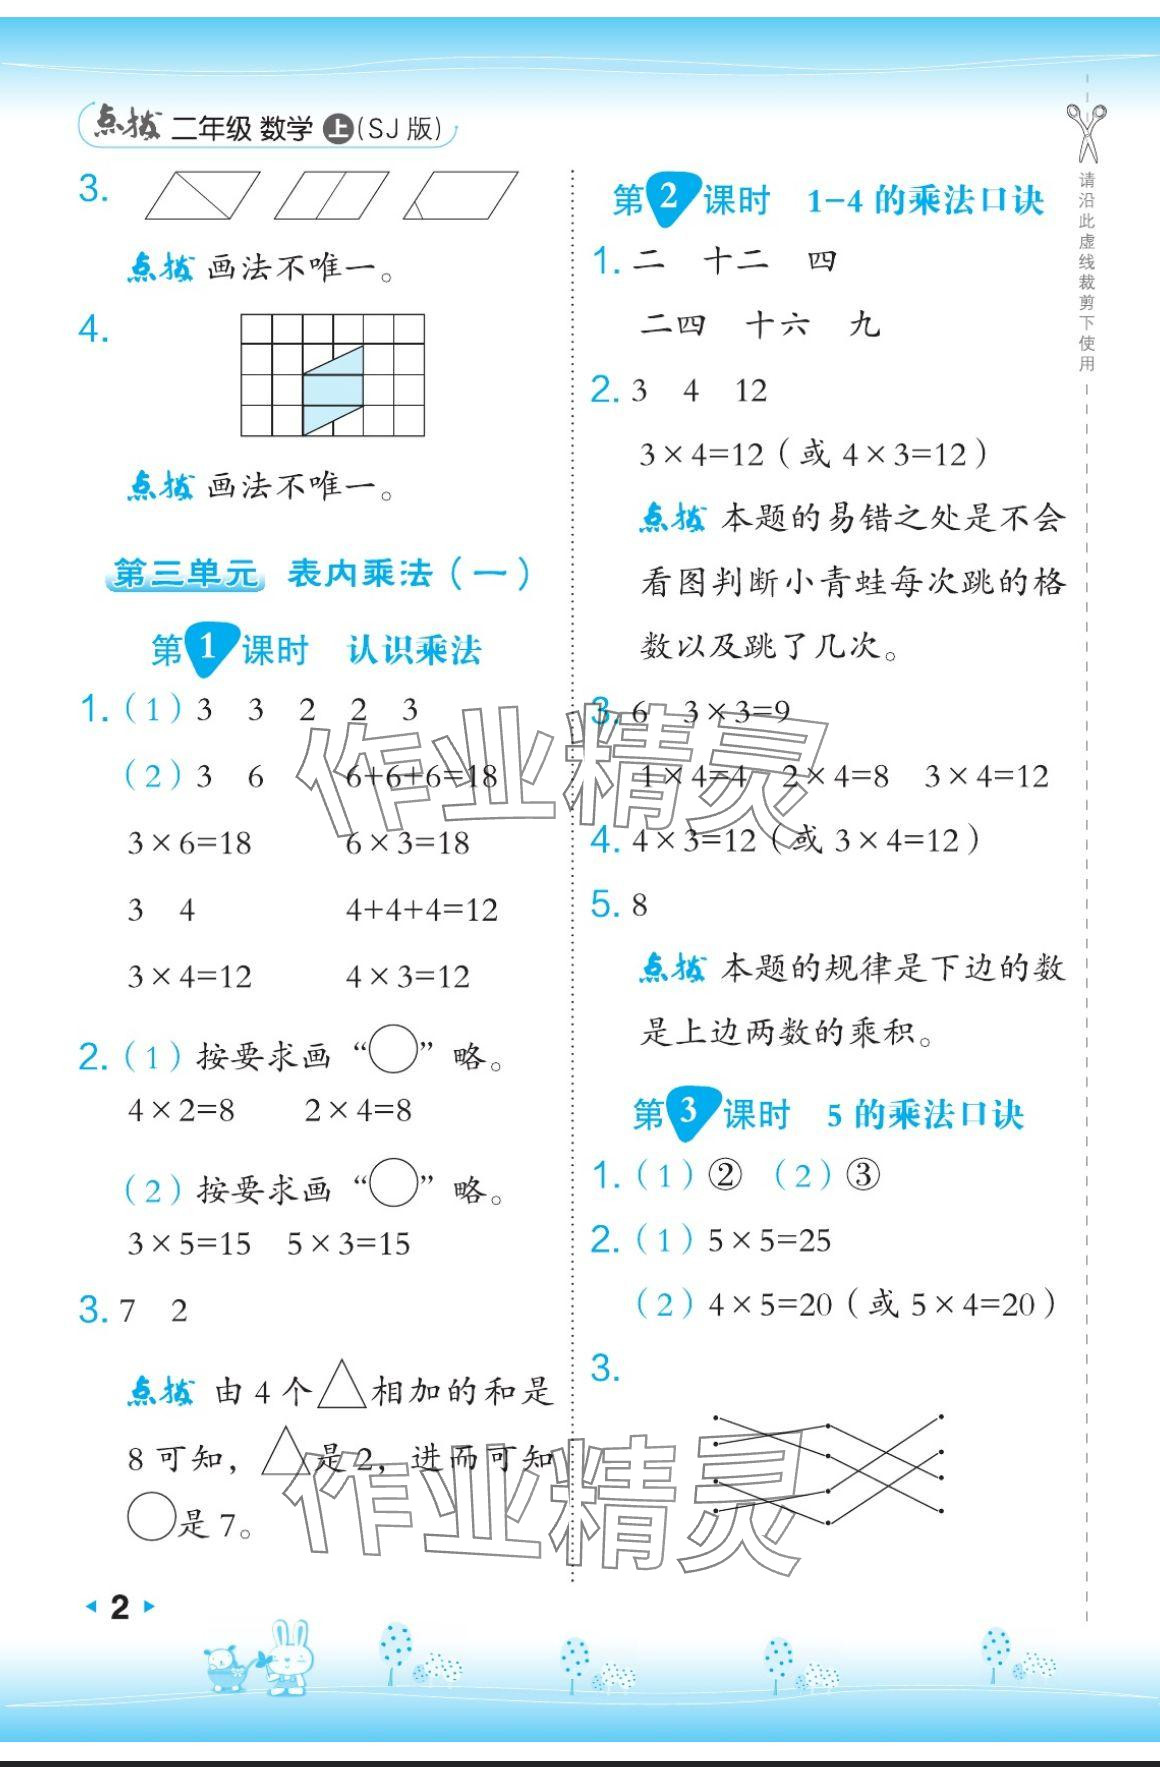 点拨 二年级 数学 上(SJ版)
3.
点拨 画法不唯一。
4.
点拨 画法不唯一。
第三单元 表内乘法(一)
第1课时 认识乘法
1.(1)3 3 2 2 3
(2)3 6 6+6+6=18
3×6=18 6×3=18
3 4 4+4+4=12
3×4=12 4×3=12
2.(1)按要求画“○”略。
4×2=8 2×4=8
(2)按要求画“○”略。
3×5=15 5×3=15
3. 7 2
点拨 由4个△相加的和是
8可知，△是2，进而可知
○是7。
2
第2课时 1-4的乘法口诀
1. 二 十二 四
二四 十六 九
2. 3 4 12
3×4=12(或4×3=12)
点拨 本题的易错之处是不会
看图判断小青蛙每次跳的格
数以及跳了几次。
3. 6 3×3=9
1×4=4 2×4=8 3×4=12
4. 4×3=12(或3×4=12)
5. 8
点拨 本题的规律是下边的数
是上边两数的乘积。
第3课时 5的乘法口诀
1.(1)② (2)③
2.(1)5×5=25
(2)4×5=20(或5×4=20)
3.
请沿此虚线裁剪下使用
作业精灵
作业精灵